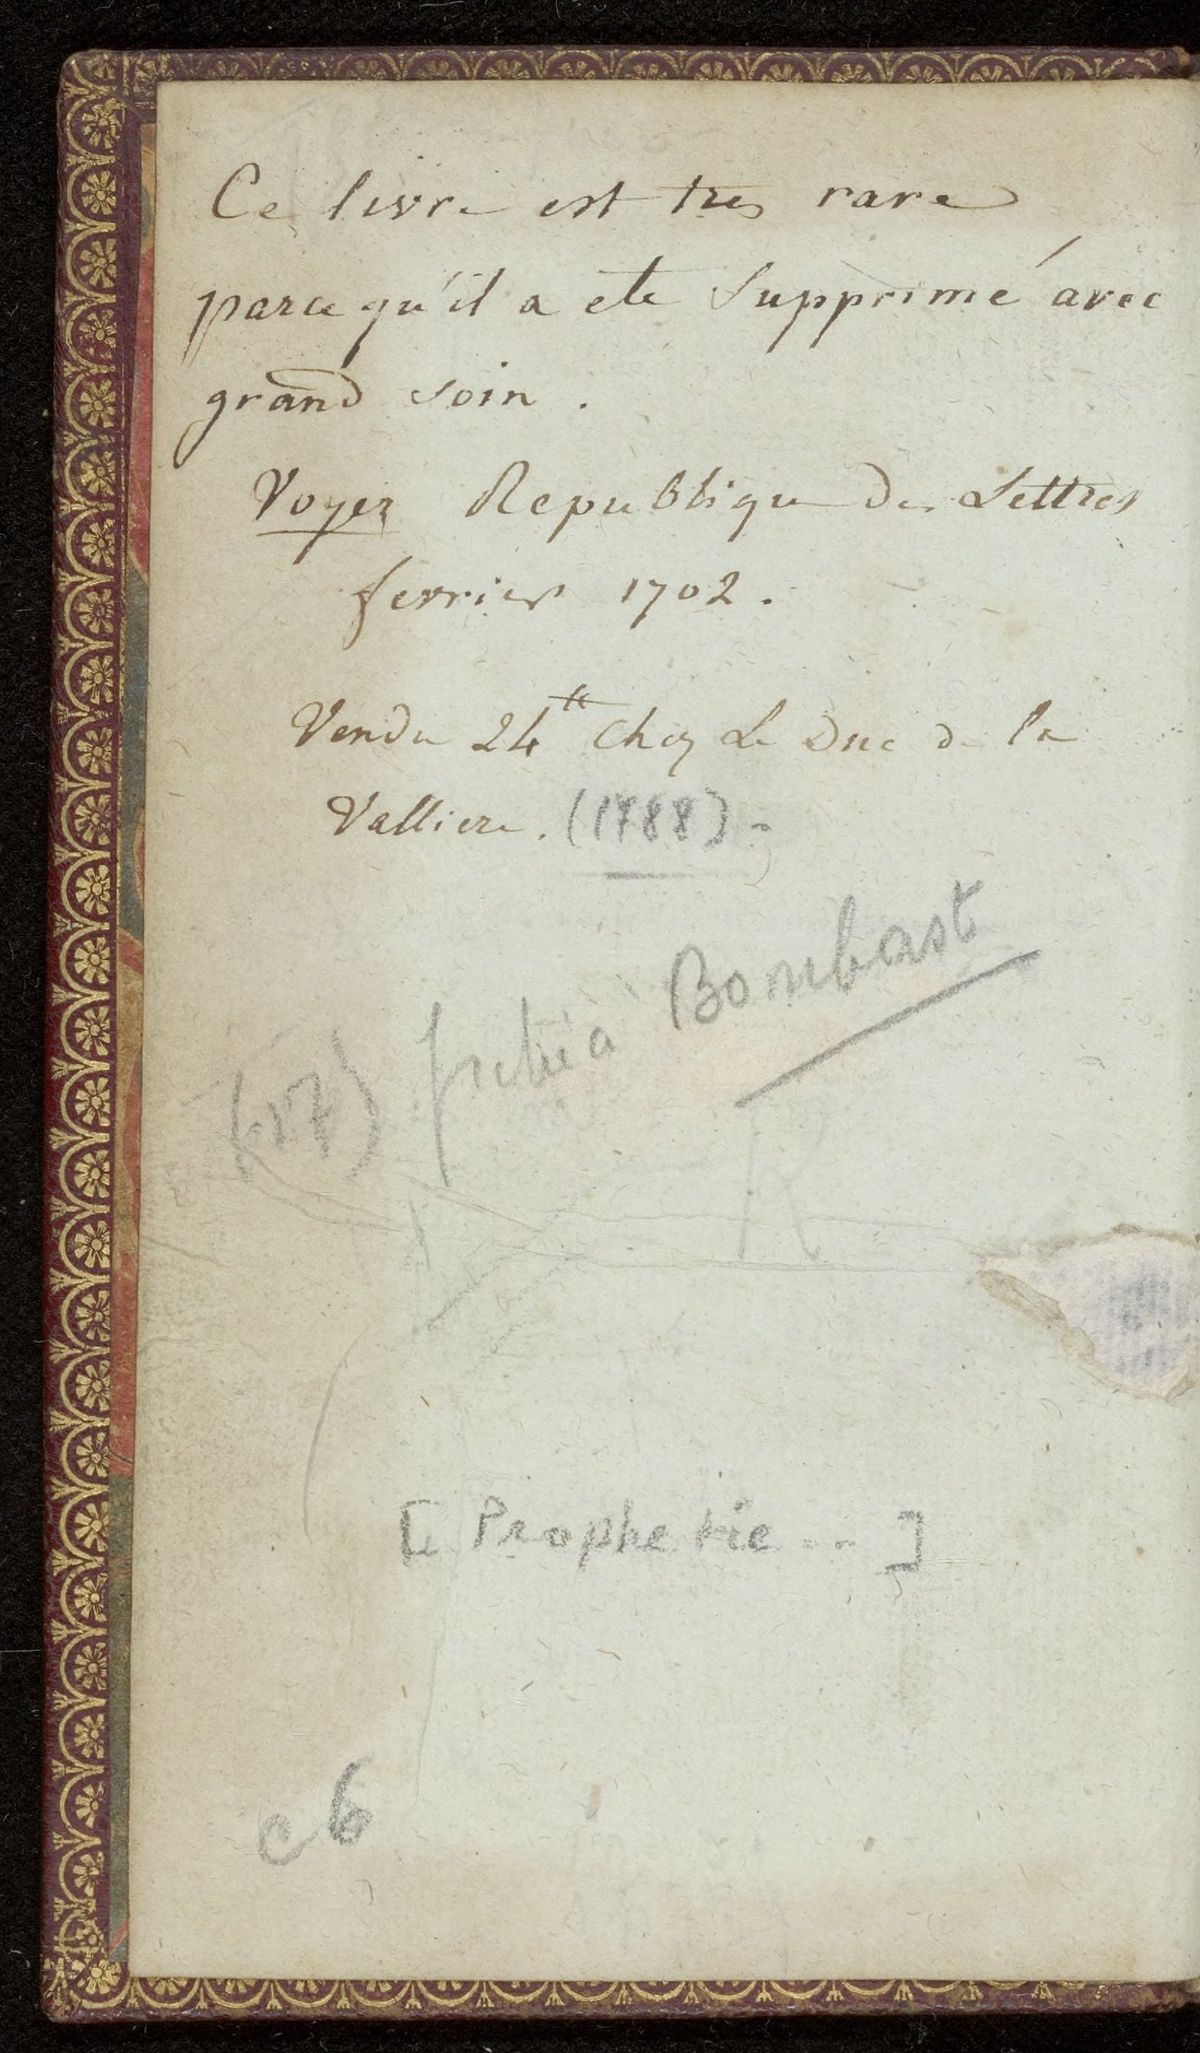 Ce livre est tres rare
parce qu'il a eté supprimé avec
grand soin .
Voyez Republique des Lettres
fevrier 1702 .
Vendu 24 ₶ chez Le Duc de la
Valliere . (1788)
fiché à Bombast
[ Prophetie ... ]
c 6